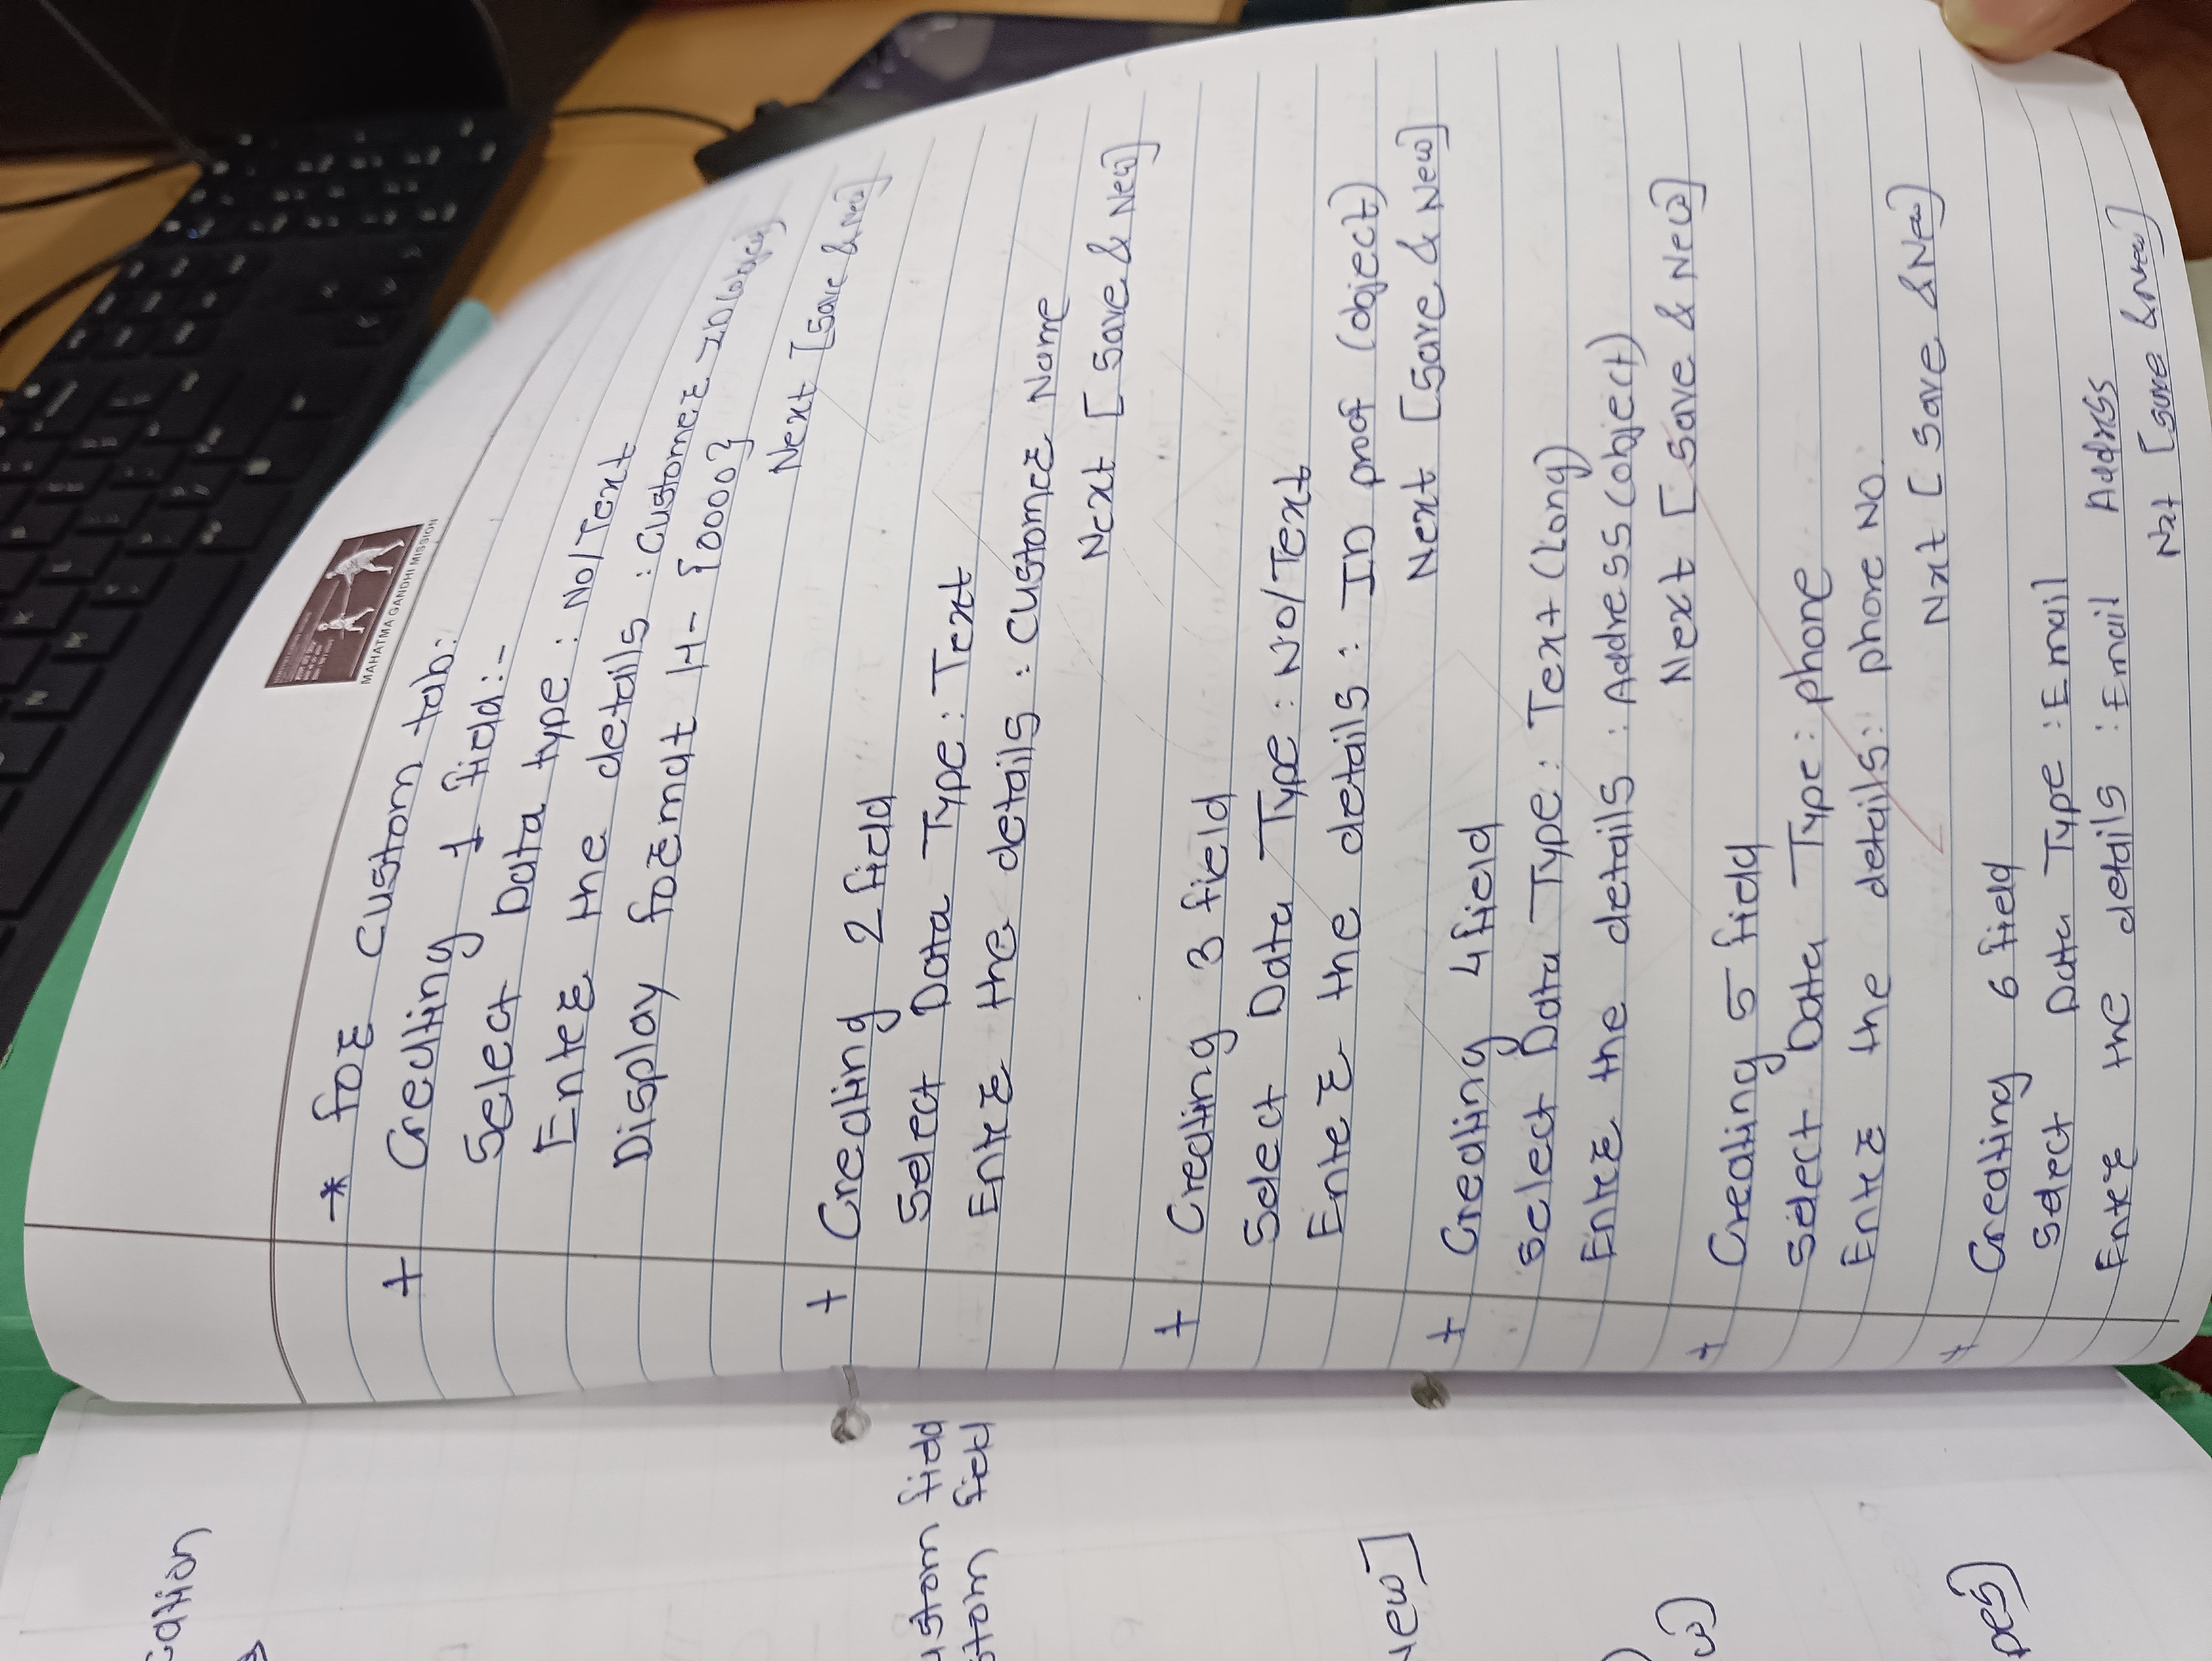 MAHATMA GANDHI MISSION
* for custom tab:
+ Creating 1 field:-
Select Data type : No/Text
Enter the details : Customer ID (object)
Display format H- {0000}
Next [Save & New]
+ Creating 2 field
Select Data Type : Text
Enter the details : Customer Name
Next [Save & New]
+ Creating 3 field
Select Data Type : No/Text
Enter the details : ID prof (object)
Next [Save & New]
+ Creating 4 field
Select Data Type : Text (Long)
Enter the details : Address (object)
Next [Save & New]
+ Creating 5 field
Select Data Type : phone
Enter the details : phone No.
Nxt [Save & New]
+ Creating 6 field
Select Data Type : Email
Enter the details : Email Address
Nxt [Save & New]
cation
ustom field
stom field
New]